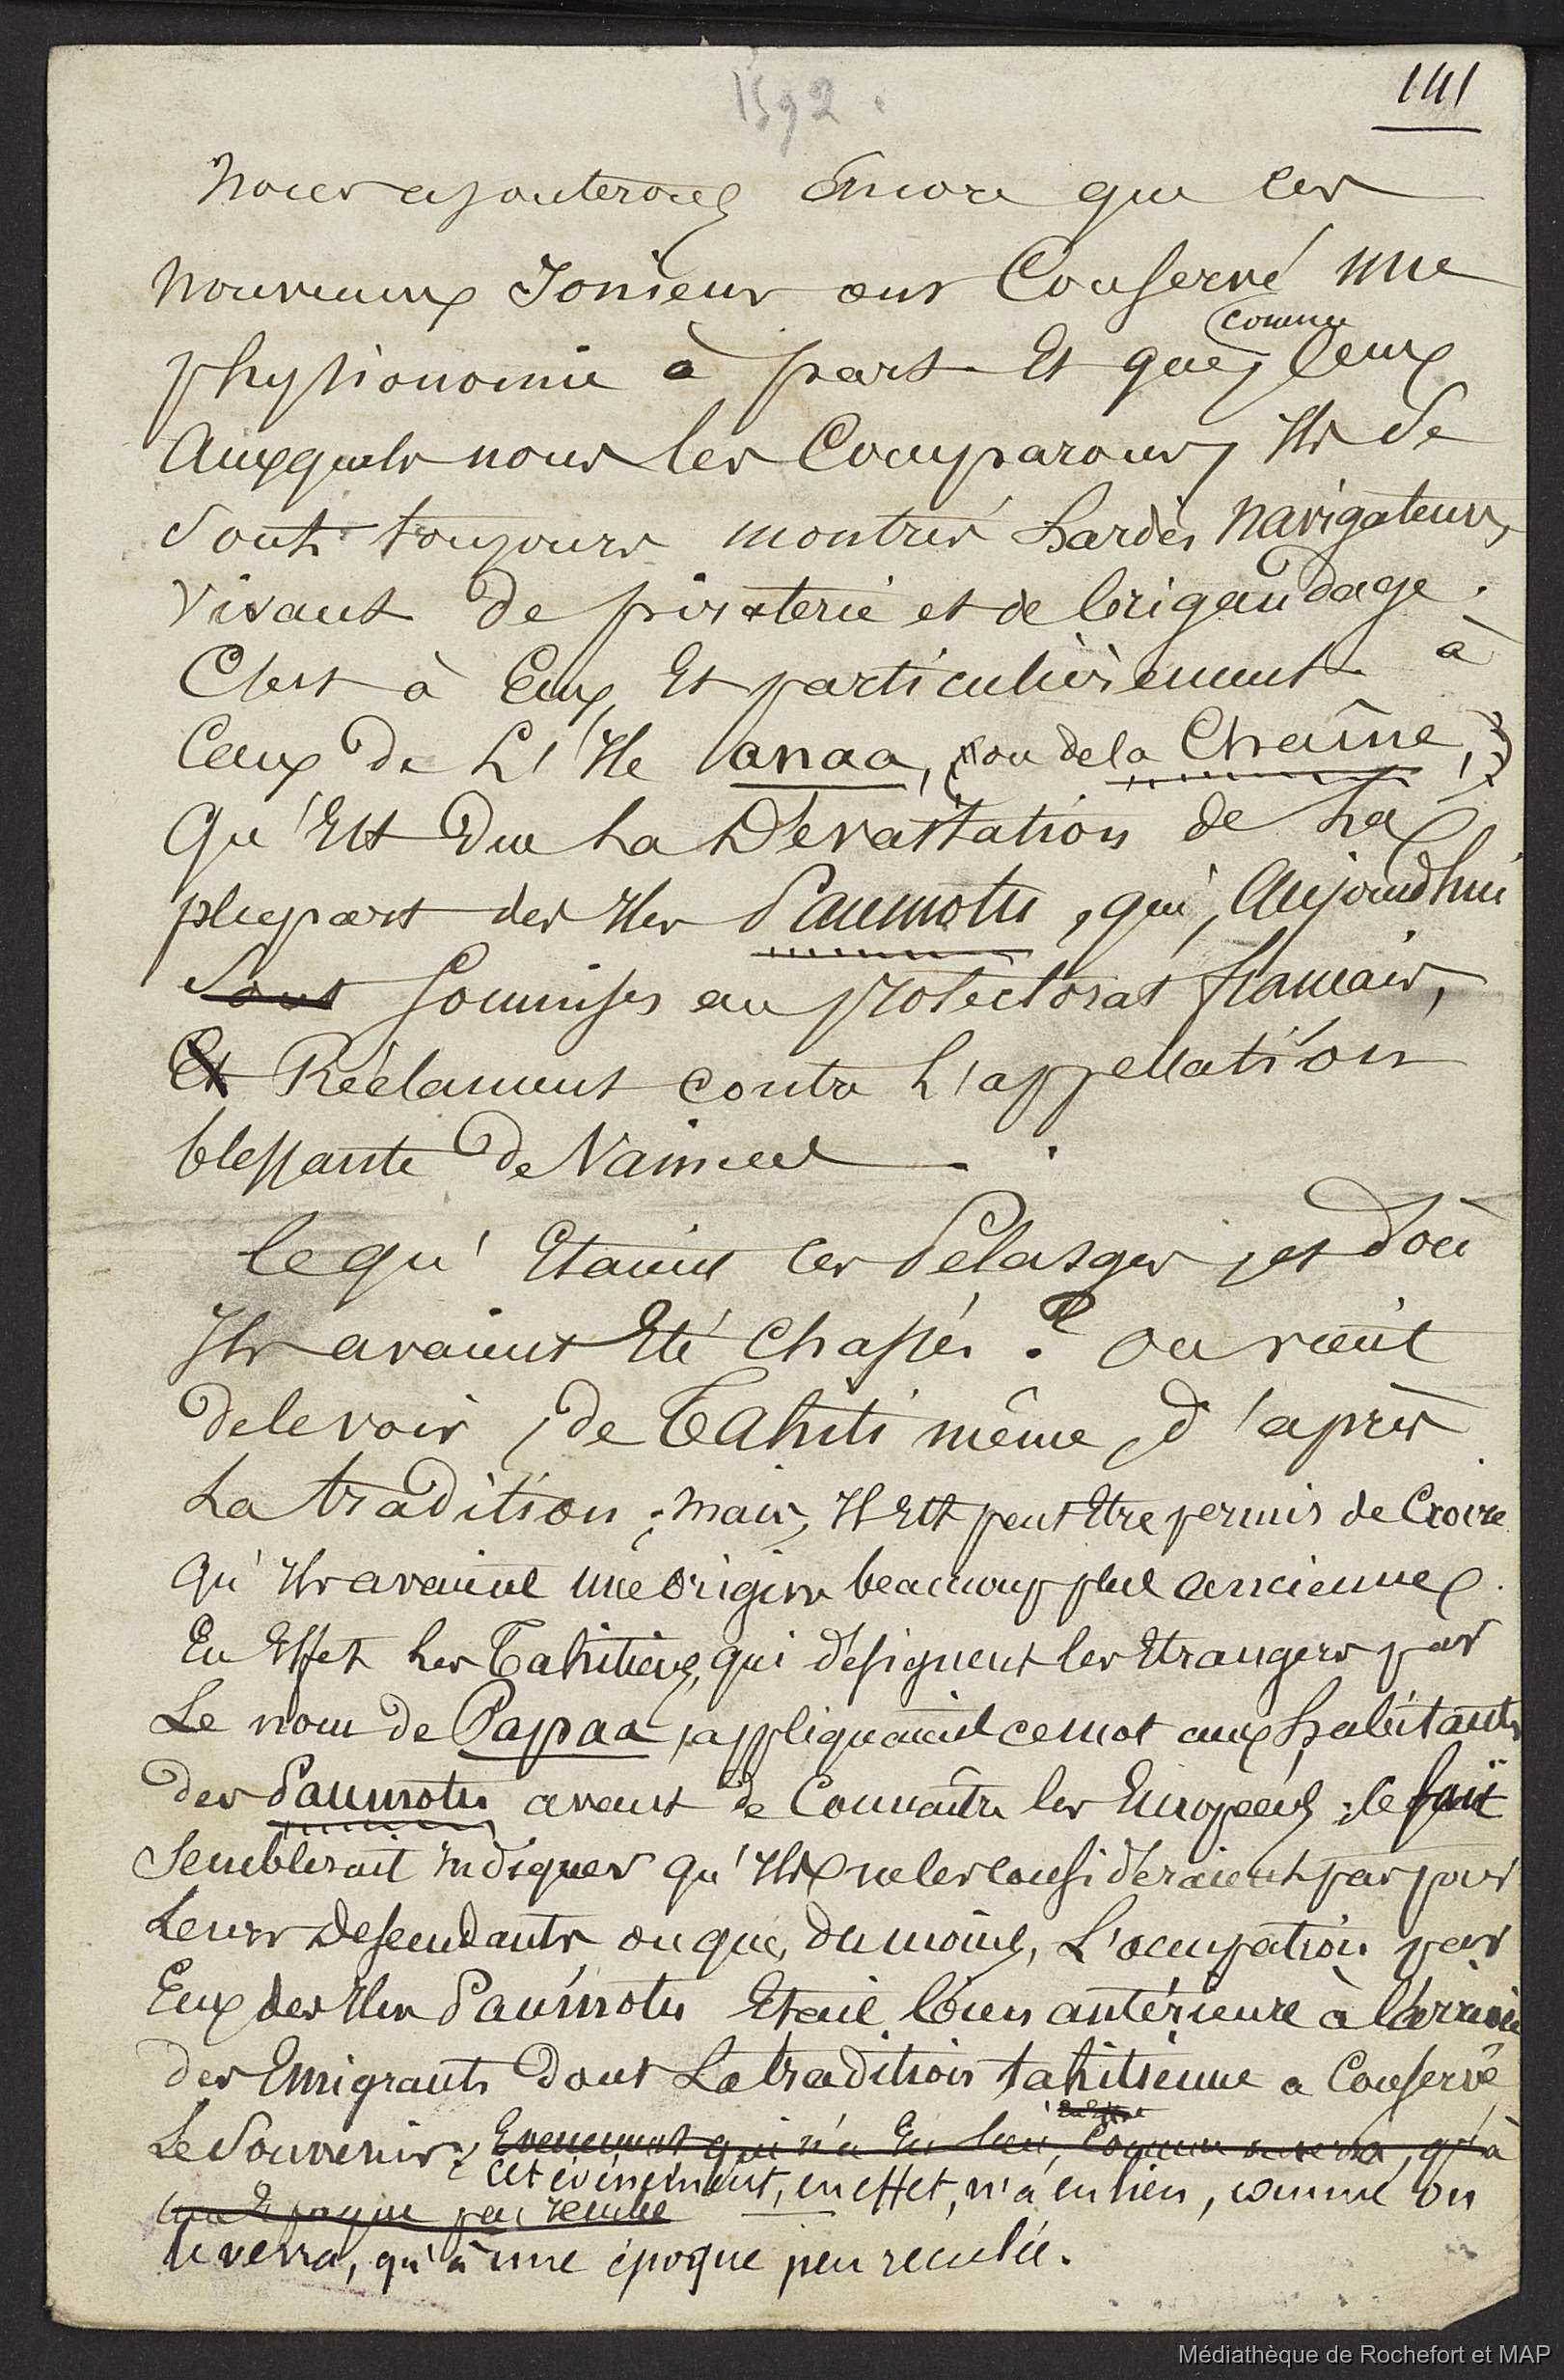 1592.
141
Nous ajouterons Encore que ces
nouveaux Ioniens ont Conservé une
physionomie à part Et que, comme Ceux
Auxquels nous les Comparons, Ils Se
Sont toujours montrés hardis navigateurs,
Vivant de piraterie et de brigandage.
C'est à Eux, Et particulièrement à
Ceux de L'Ile anaa, (ou de la Chaîne,)
Qu'Est Due La Dévastation de La
plupart des Iles Paumotu, qui, Aujourdhui
Sont Soumises au protectorat français,
Et Réclament contre L'appellation
blessante de Vaincus.
Ce qu'Etaient ces Pelasges, et d'où
Ils avaient Eté Chassés? On vient
de le voir, de Tahiti même, d'après
La tradition; mais, Il Est peut Etre permis de Croire
Qu'Ils avaient une origine beaucoup plus ancienne.
En Effet Les Tahitiens, qui désignent les Etrangers par
Le nom de Papaa, appliquaient ce mot aux habitants
des Paumotu avant de Connaître les Européens; le fait
Semblerait indiquer qu'Ils ne les considéraient pas pour
Leurs Descendants, ou que, du moins, L'occupation par
Eux des Iles Paumotu Etait bien antérieure à l'arrivée
des Emigrants Dont La tradition tahitienne a Conservé
Le Souvenir; Evenement qui n'a Eu lieu, Comme on verra, qu'à
Cet événement, en effet, n'a eu lieu, comme on
une Epoque peu reculée
le verra, qu'à une époque peu reculée.
Médiathèque de Rochefort et MAP